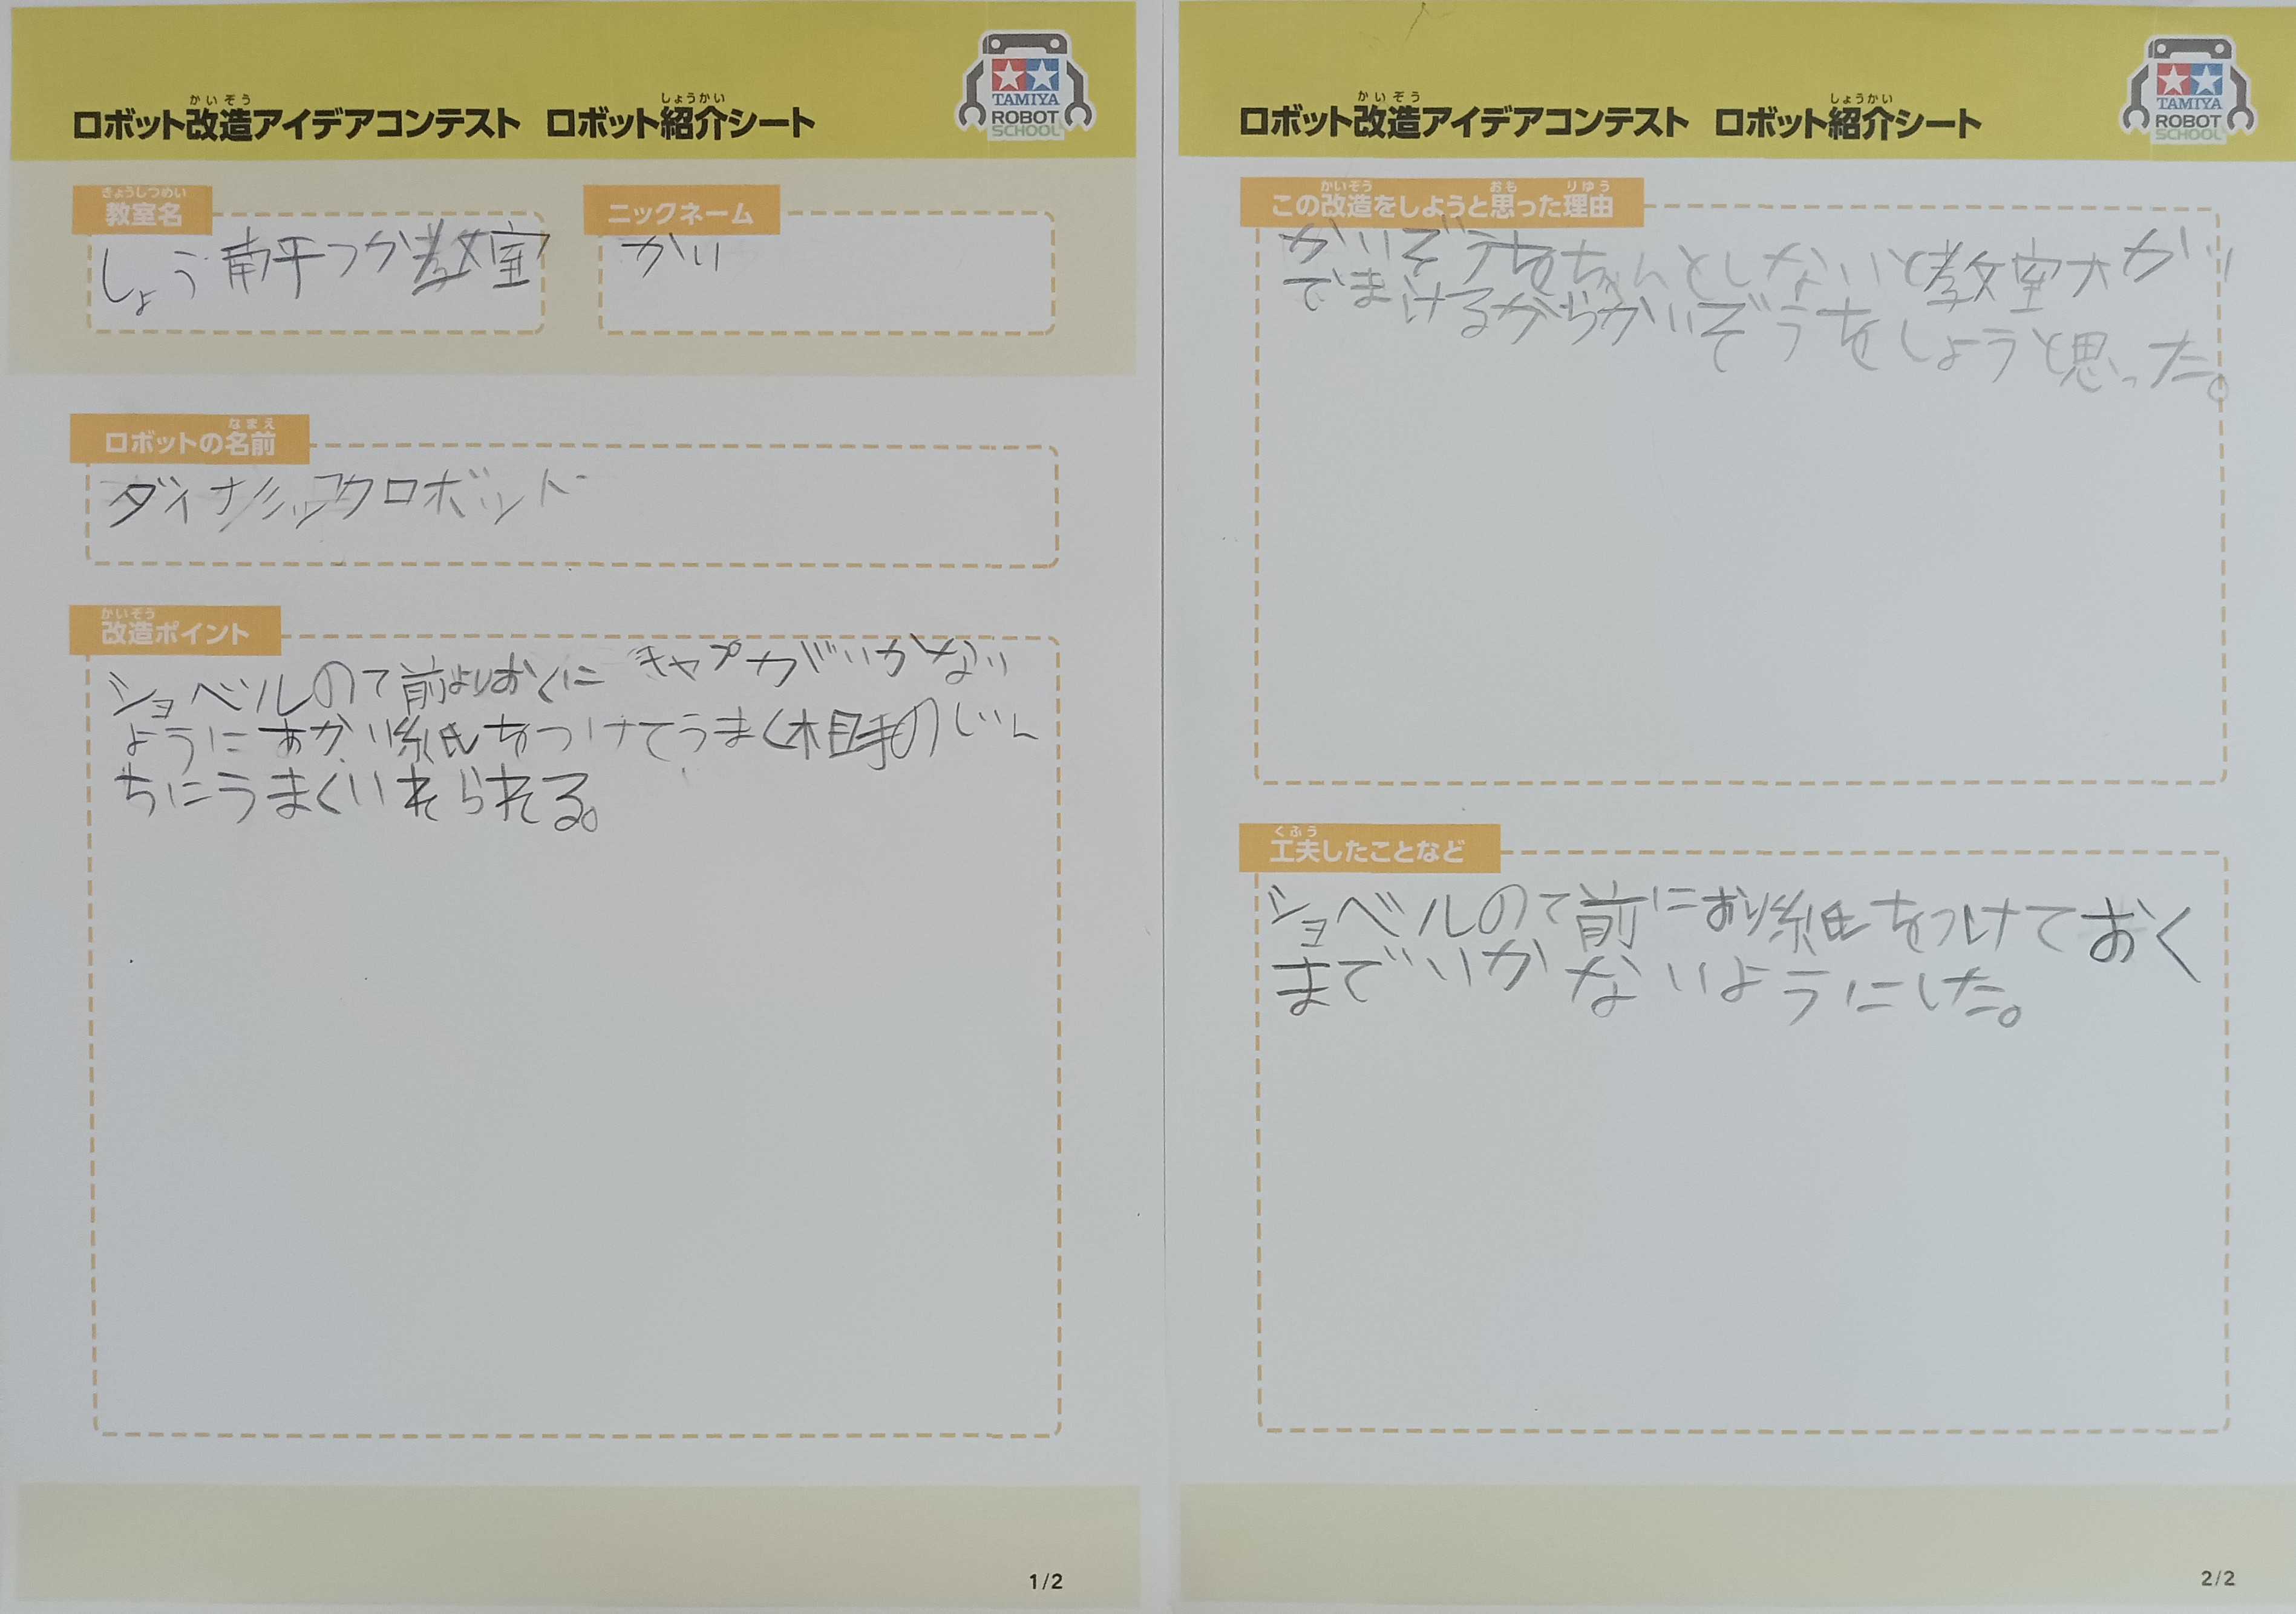 かいぞう しょうかい
ロボット改造アイデアコンテスト ロボット紹介シート
TAMIYA
ROBOT
SCHOOL
きょうしつめい
教室名
しょう南平つか教室
ニックネーム
かい
なまえ
ロボットの名前
ダイナミックロボット
かいぞう
改造ポイント
ショベルのて前よりおくにキャプがいかない
ようにあかい紙をつけてうまく相手のじん
ちにうまくいれられる。
1/2
かいぞう しょうかい
ロボット改造アイデアコンテスト ロボット紹介シート
TAMIYA
ROBOT
SCHOOL
かいぞう おも りゆう
この改造をしようと思った理由
かいぞうをちゃんとしないと教室大かい
でまけるからかいぞうをしようと思った。
くふう
工夫したことなど
ショベルのて前におり紙をつけておく
までいかないようにした。
2/2